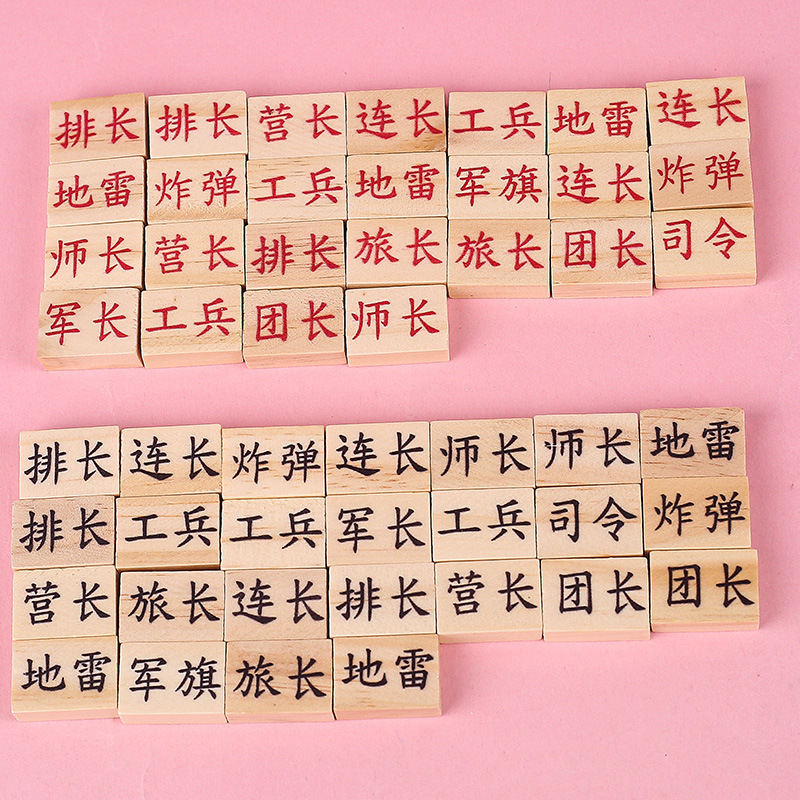 排长 排长 营长 连长 工兵 地雷 连长
地雷 炸弹 工兵 地雷 军旗 连长 炸弹
师长 营长 排长 旅长 旅长 团长 司令
军长 工兵 团长 师长
排长 连长 炸弹 连长 师长 师长 地雷
排长 工兵 工兵 军长 工兵 司令 炸弹
营长 旅长 连长 排长 营长 团长 团长
地雷 军旗 旅长 地雷